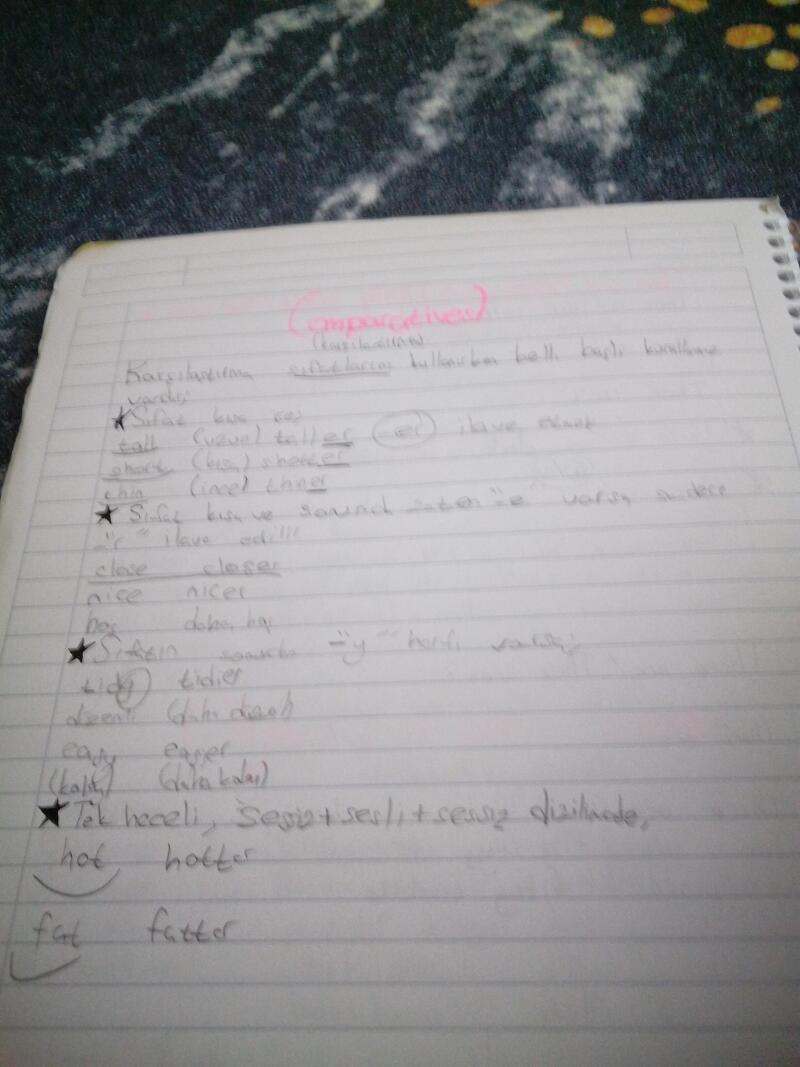 Comparatives
(karşılaştırma)
Karşılaştırma sıfatlarını kullanırken belli başlı kurallarımız
vardır.
★ Sıfat kısa ise;
tall (uzun) taller -er ilave
short (kısa) shorter
thin (ince) thiner
★ Sıfat kısa ve sonunda zaten "e" varsa sadece
"r" ilave edilir
close closer
nice nicer
hoş daha hoş
★ Sıfatın sonunda -"y" harfi varsa;
tidy tidier
düzenli (daha düzenli)
easy easer
(kolay) (daha kolay)
★ Tek heceli, sessiz+sesli+sessiz dizilimde,
hot hotter
fat fatter